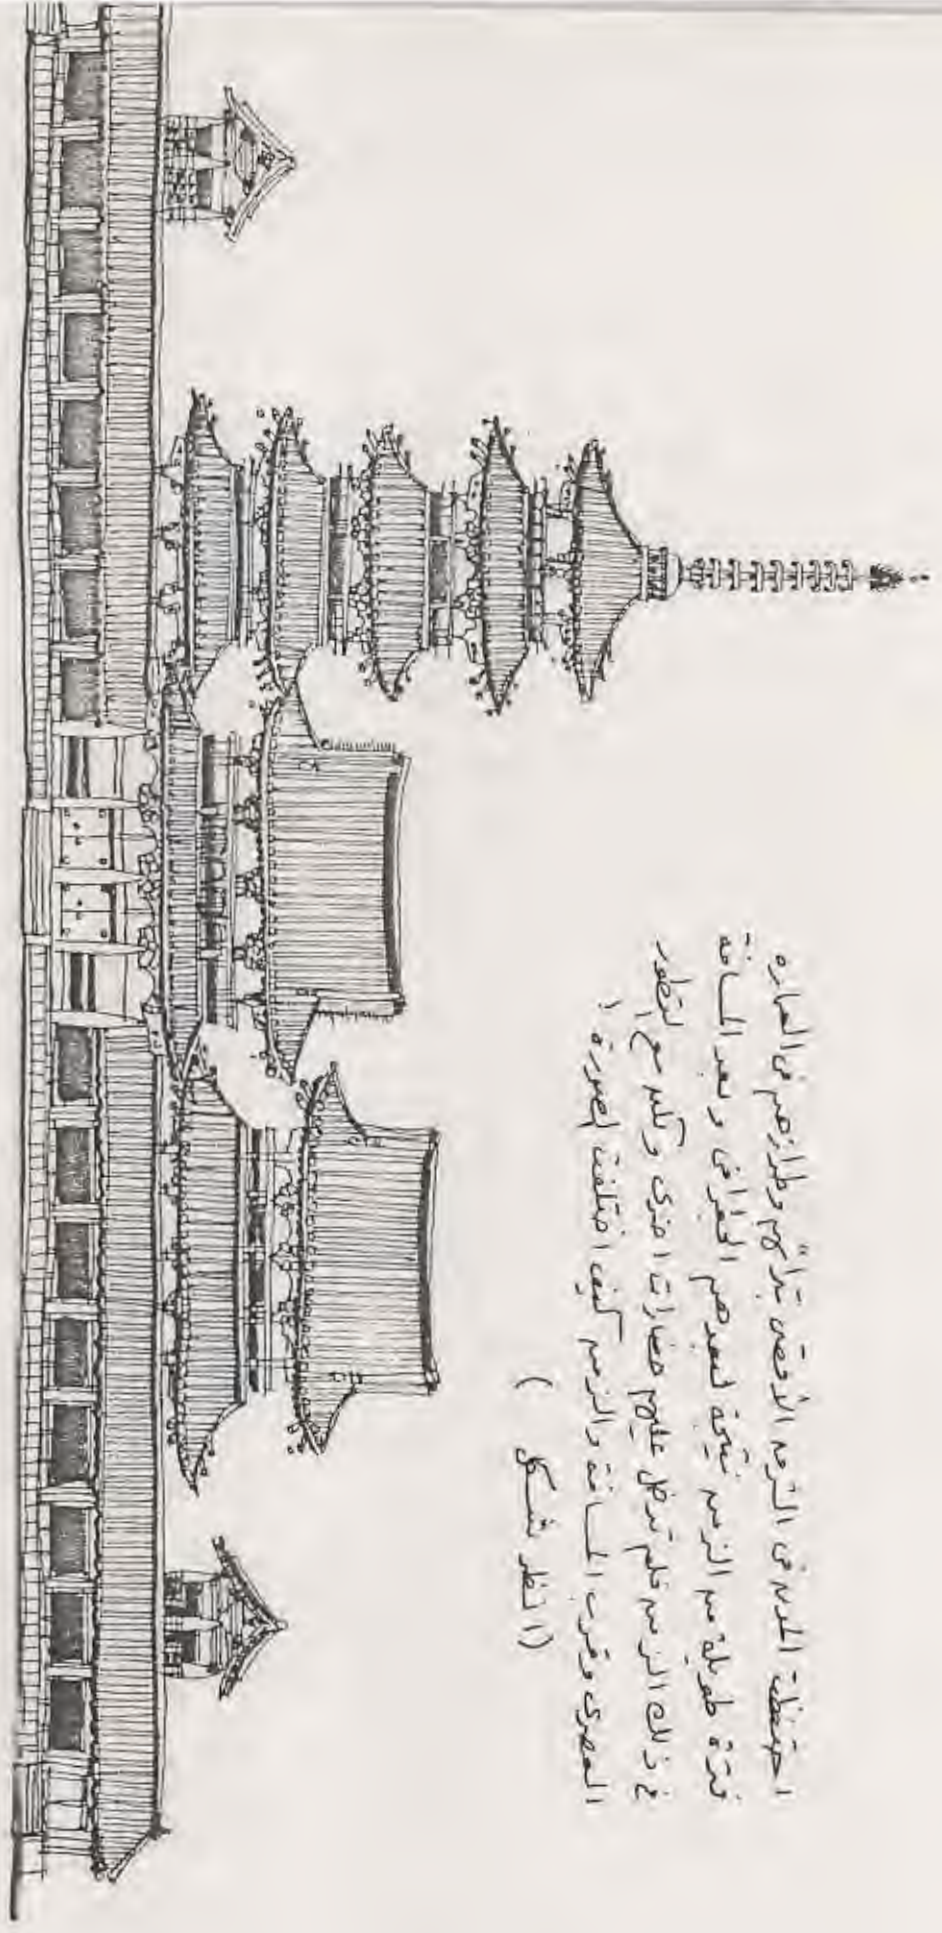 احتفظت المدن فى الشرق الأقصى بتراثهم وطرازهم فى العماره
فترة طويلة من الزمن نتيجة لبعدهم الجغرافى وبعد المسافة
فى ذلك الزمن فلم تدخل عليهم حضارات اخرى ولكن مع التطور
العصرى وقرب المسافة والزمن كيف اختلفت الصورة !
(انظر شكل )